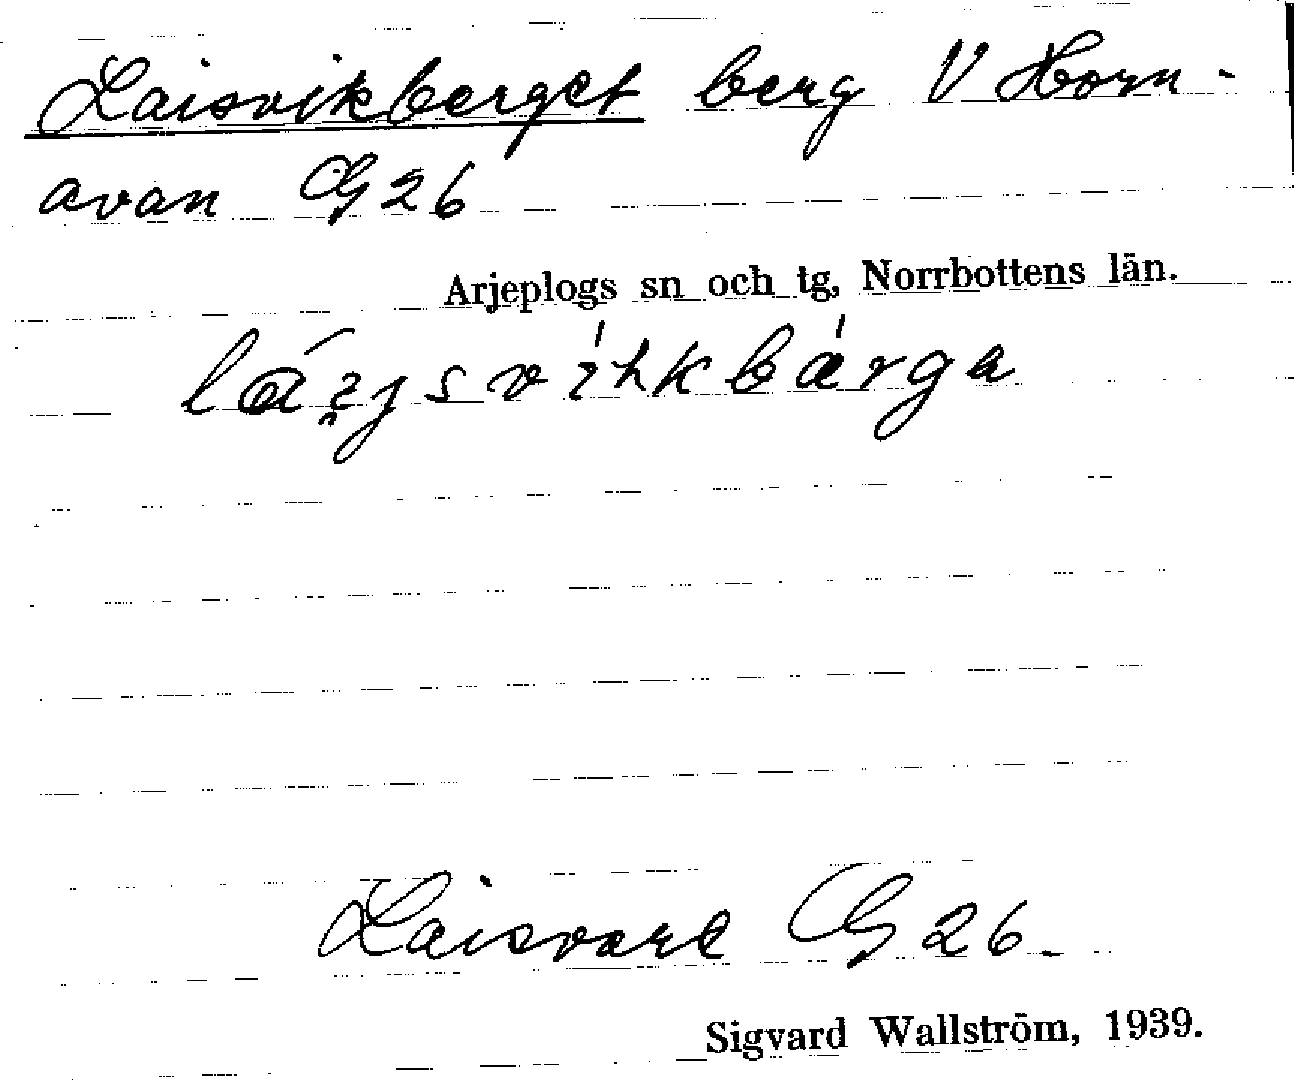 Laisvikberget berg V Horn-
avan G 26
Arjeplogs sn och tg, Norrbottens län.
Laisvare G 26.
Sigvard Wallström, 1939.